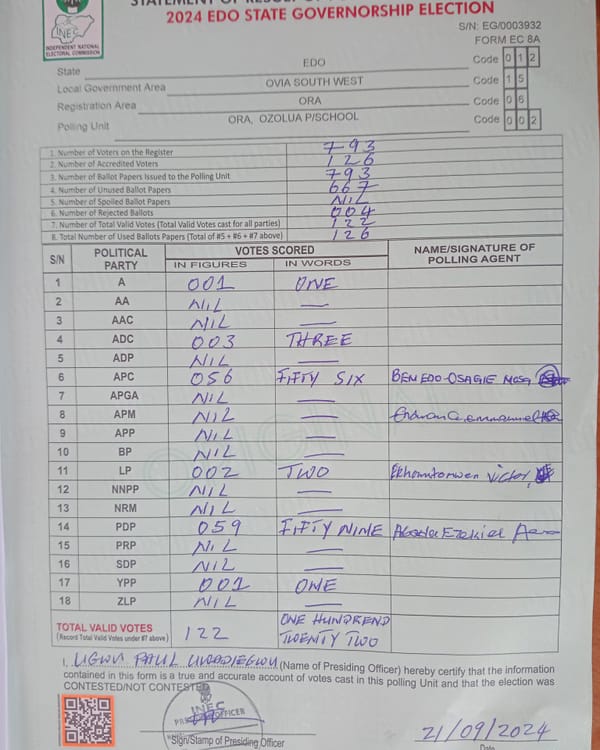 2024 EDO STATE GOVERNORSHIP ELECTION
INEC
INDEPENDENT NATIONAL
ELECTORAL COMMISSION
S/N: EG/0003932
FORM EC 8A
State EDO Code 0 1 2
Local Government Area OVIA SOUTH WEST Code 1 5
Registration Area ORA Code 0 6
Polling Unit ORA, OZOLUA P/SCHOOL Code 0 0 2
1. Number of Voters on the Register 793
2. Number of Accredited Voters 126
3. Number of Ballot Papers Issued to the Polling Unit 793
4. Number of Unused Ballot Papers 667
5. Number of Spoiled Ballot Papers NIL
6. Number of Rejected Ballots 004
7. Number of Total Valid Votes (Total Valid Votes cast for all parties) 122
8. Total Number of Used Ballots Papers (Total of #5 + #6 + #7 above) 126
S/N POLITICAL PARTY VOTES SCORED NAME/SIGNATURE OF POLLING AGENT
IN FIGURES IN WORDS
1 A 001 ONE
2 AA NIL —
3 AAC NIL —
4 ADC 003 THREE
5 ADP NIL —
6 APC 056 FIFTY SIX BENEDO-OSAGIE
7 APGA NIL —
8 APM NIL —
9 APP NIL —
10 BP NIL —
11 LP 002 TWO Victor
12 NNPP NIL —
13 NRM NIL —
14 PDP 059 FIFTY NINE Ezekiel
15 PRP NIL —
16 SDP NIL —
17 YPP 001 ONE
18 ZLP NIL —
TOTAL VALID VOTES 122 ONE HUNDREND
(Record Total Valid Votes under #7 above) TWENTY TWO
I, UGWU PAUL (Name of Presiding Officer) hereby certify that the information
contained in this form is a true and accurate account of votes cast in this polling Unit and that the election was
CONTESTED/NOT CONTESTED
INEC
PRESIDING OFFICER
*Sign/Stamp of Presiding Officer
21/09/2024
Date